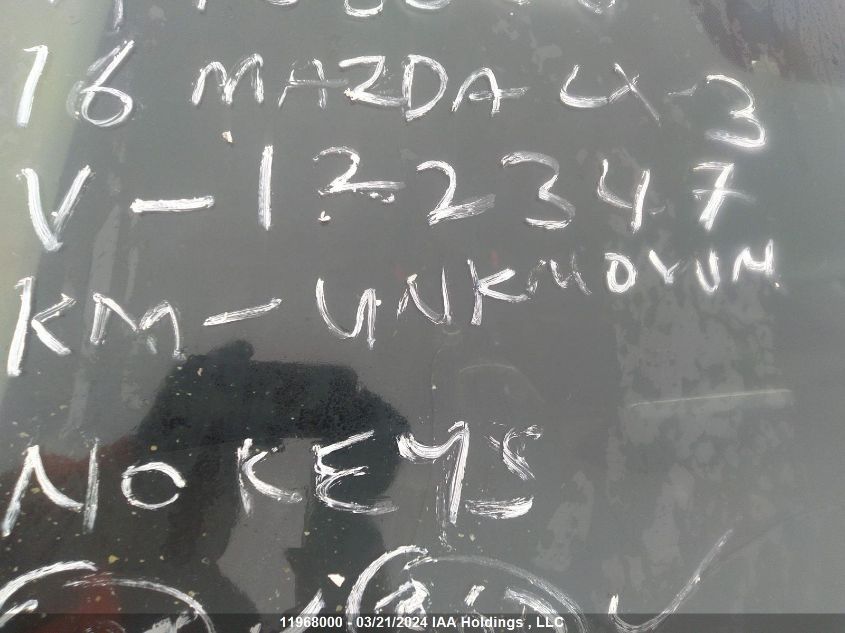 16 MAZDA CX-3
V - 122347
KM - UNKNOWN
NO KEYS
11968000 - 03/21/2024 IAA Holdings , LLC